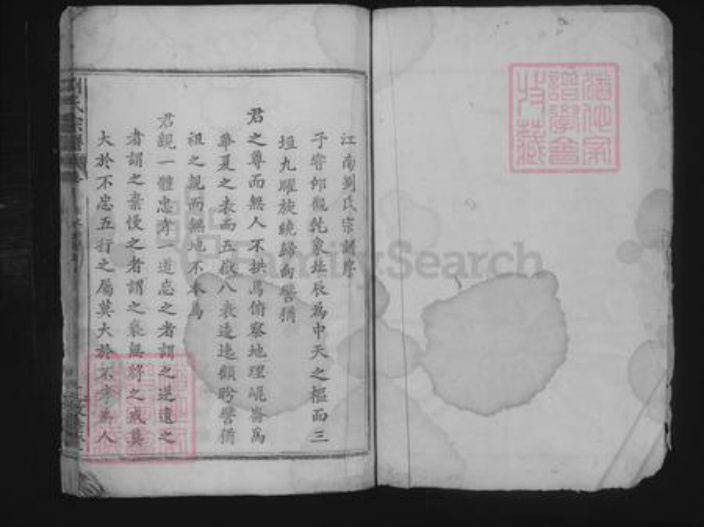 江南劉氏宗譜序
予嘗仰觀乾象北辰為中天之樞而三
垣九曜旋繞歸向譬猶
君之尊而無人不拱焉俯察地理崐崙為
華夏之表而五嶽八表逶迤顧盼譬猶
祖之親而無地不本焉
君親一體忠孝一道忘之者謂之逆遠之
者謂之棄慢之者謂之褻無將之戒莫
大於不忠五行之屬莫大於不孝為人
FamilySearch